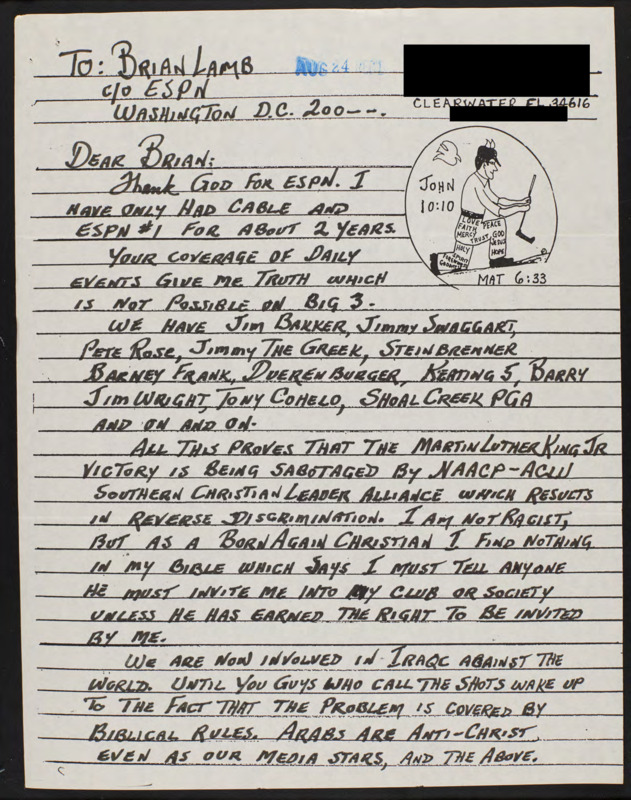 To: BRIAN LAMB
c/o ESPN
WASHINGTON D.C. 200--.
AUG 24
CLEARWATER FL. 34616
DEAR BRIAN:
Thank GOD FOR ESPN. I
HAVE ONLY HAD CABLE AND
ESPN #1 FOR ABOUT 2 YEARS.
YOUR COVERAGE OF DAILY
EVENTS GIVE ME TRUTH WHICH
IS NOT POSSIBLE ON BIG 3.
JOHN
10:10
LOVE
FAITH
MERCY
PEACE
TRUST
GOD
JESUS
HOPE
HOLY
SPIRIT
MAT 6:33
WE HAVE JIM BAKKER, JIMMY SWAGGART,
PETE ROSE, JIMMY THE GREEK, STEINBRENNER
BARNEY FRANK, DUERENBURGER, KEATING 5, BARRY
JIM WRIGHT, TONY COHELO, SHOAL CREEK PGA
AND ON AND ON.
ALL THIS PROVES THAT THE MARTIN LUTHER KING JR
VICTORY IS BEING SABOTAGED BY NAACP-ACLU
SOUTHERN CHRISTIAN LEADER ALLIANCE WHICH RESULTS
IN REVERSE DISCRIMINATION. I AM NOT RACIST,
BUT AS A BORN AGAIN CHRISTIAN I FIND NOTHING
IN MY BIBLE WHICH SAYS I MUST TELL ANYONE
HE MUST INVITE ME INTO MY CLUB OR SOCIETY
UNLESS HE HAS EARNED THE RIGHT TO BE INVITED
BY ME.
WE ARE NOW INVOLVED IN IRAQC AGAINST THE
WORLD. UNTIL YOU GUYS WHO CALL THE SHOTS WAKE UP
TO THE FACT THAT THE PROBLEM IS COVERED BY
BIBLICAL RULES. ARABS ARE ANTI-CHRIST
EVEN AS OUR MEDIA STARS, AND THE ABOVE.